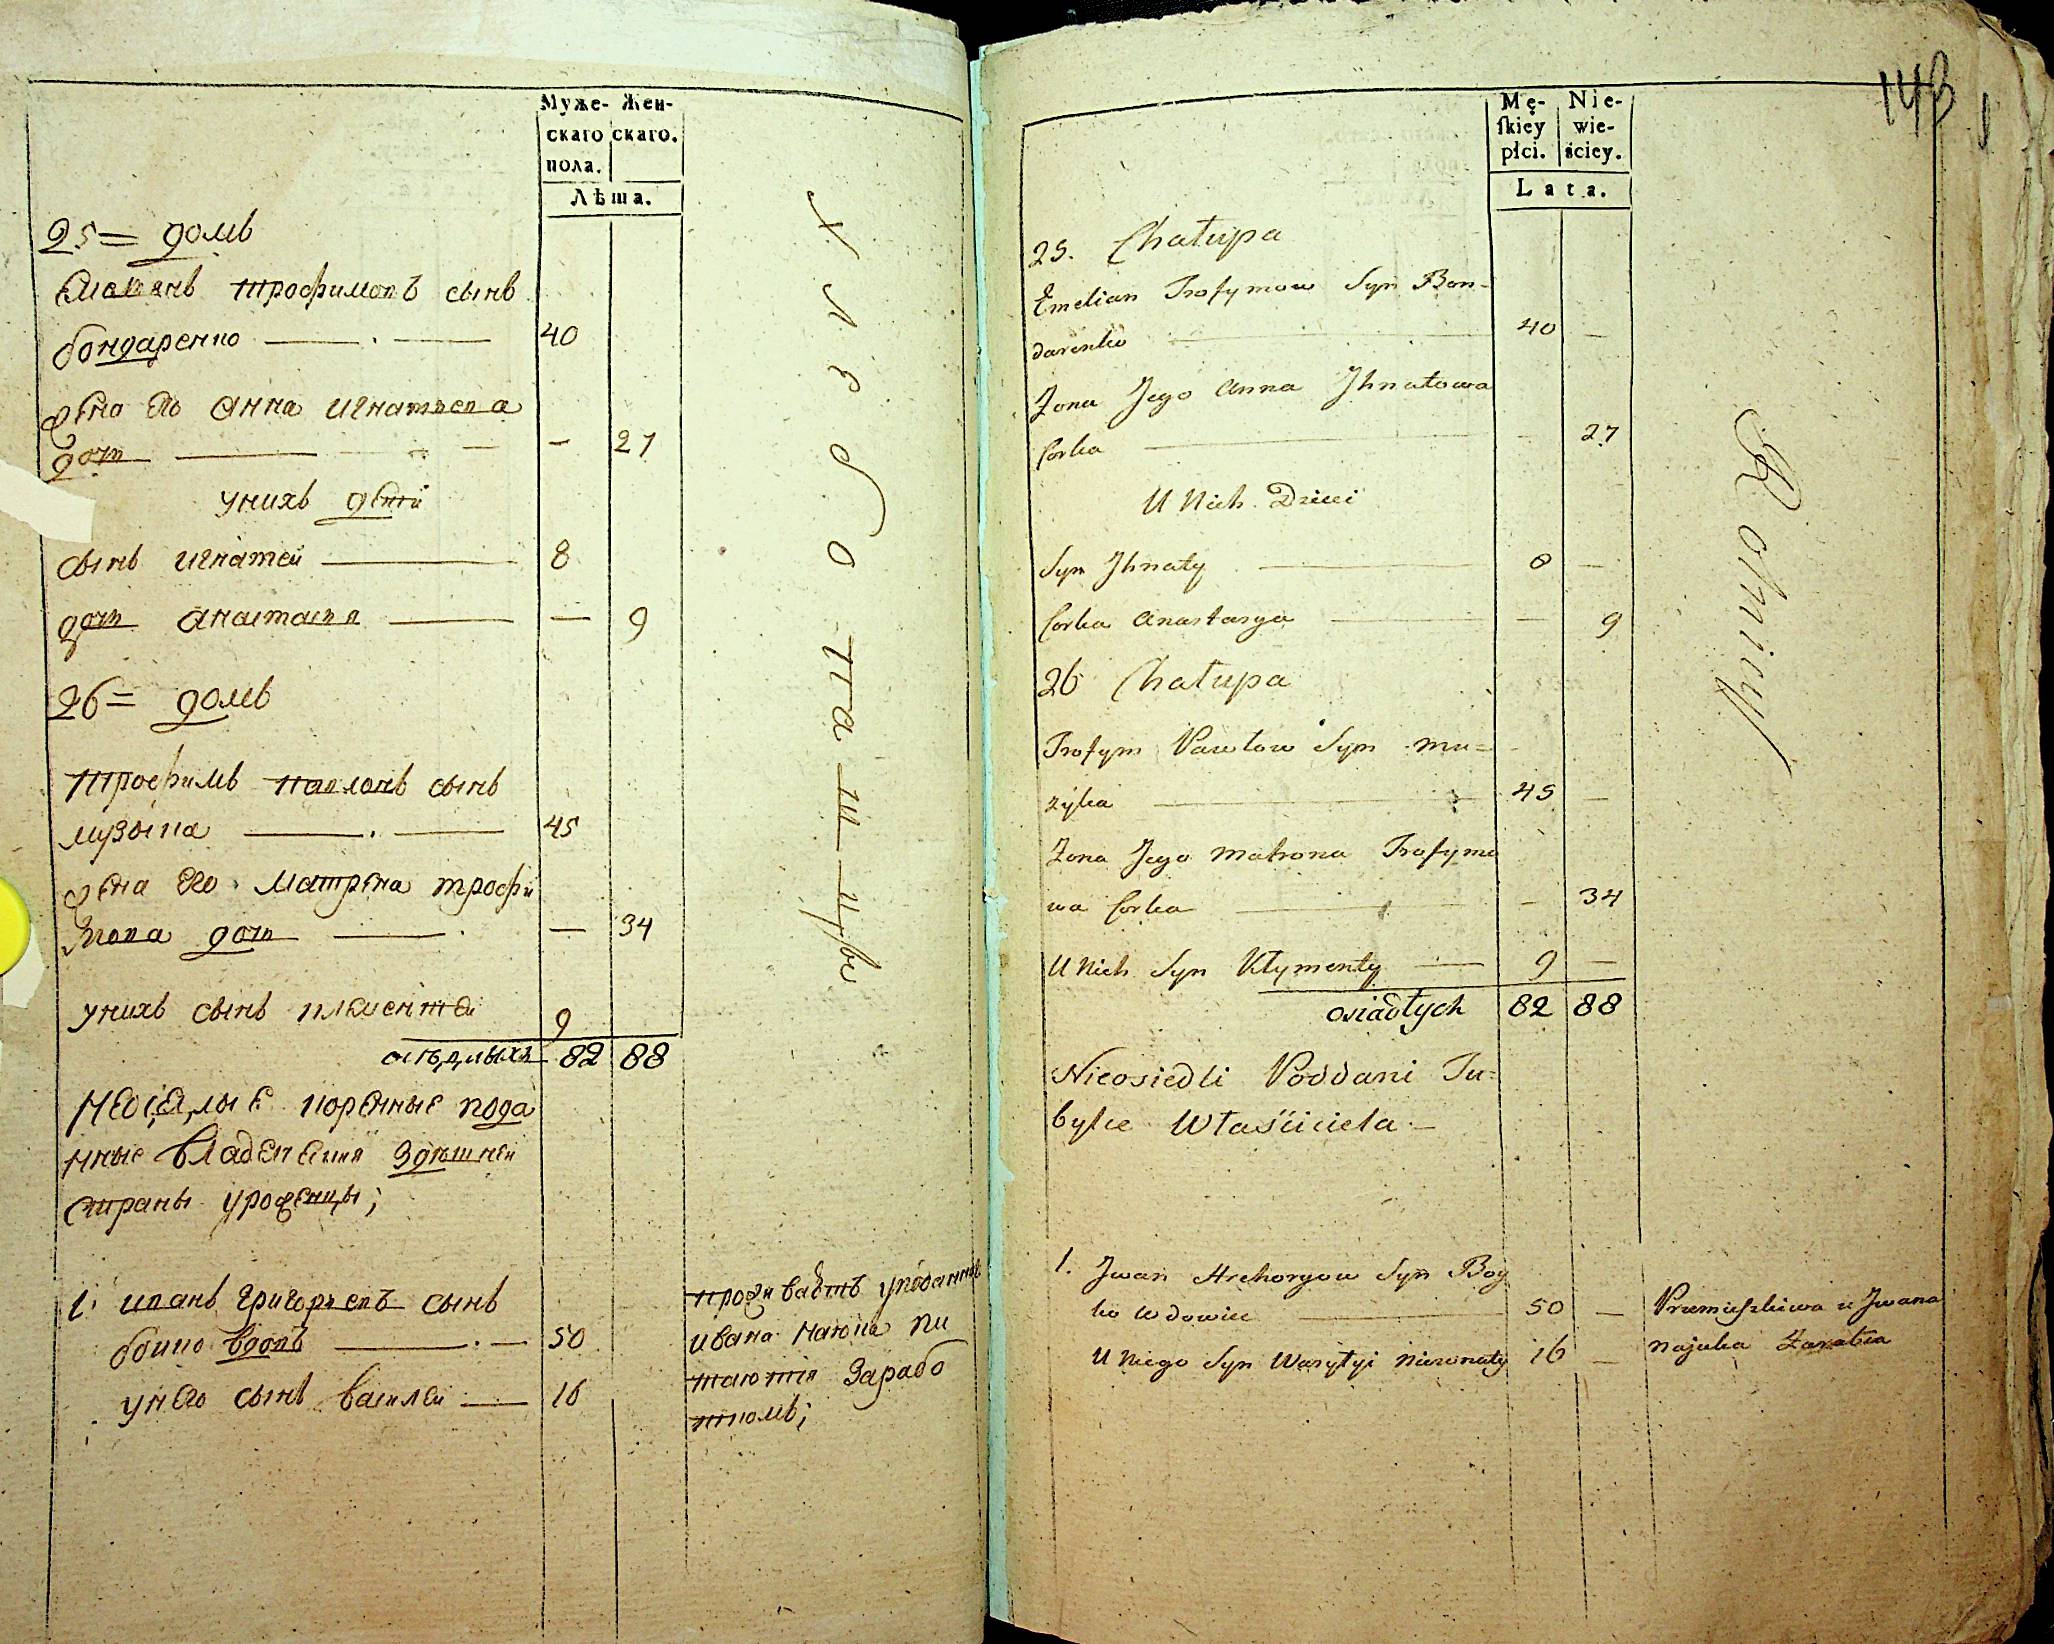 Муже- Жен-
скаго скаго.
пола.
Лѣта.
25= домъ
Емелянъ трофимовъ сынъ
бондаренко 40
жена его анна игнатьева
дочь — 27
унихъ детей
сынъ игнатей 8
дочь анастасия — 9
26= домъ
трофимъ павловъ сынъ
музыка 45
жена его матрена трофи
мова дочь — 34
унихъ сынъ климентей 9
оседлыхъ 82 88
хлебопашцы
неоседлые коренные пода
нные владенения здешней
страны уроженцы;
1. иванъ григорьевъ сынъ
бойко вдовъ 50
унего сынъ василей 16
проживаетъ уподанного
ивана наюка пи
таются зарабо
ткомъ;
143
Mę- Nie-
ſkiey wie-
płci. ściey.
Lata.
25. Chałupa
Emelian Trofymow Syn Bon-
darenko 40 —
Zona Jego Anna Jhnatowa
Corka — 27
U Nich Dzieci
Syn Jhnaty 8 —
Corka Anastasya — 9
26 Chałupa
Trofym Pawłow Syn Mu=
zyka 45 —
Zona Jego Matrona Trofymo
wa Corka — 34
U Nich Syn Kłymenty 9 —
osiadłych 82 88
Rolnicy
Nieosiedli Poddani Tu=
bylce Właściciela —
1. Jwan Hrehoryow Syn Boy
ko Wdowiec 50 —
U Niego Syn Wasylyi Niezonaty 16 —
Przemieszkiwa u Jwana
Najuka Zarabia